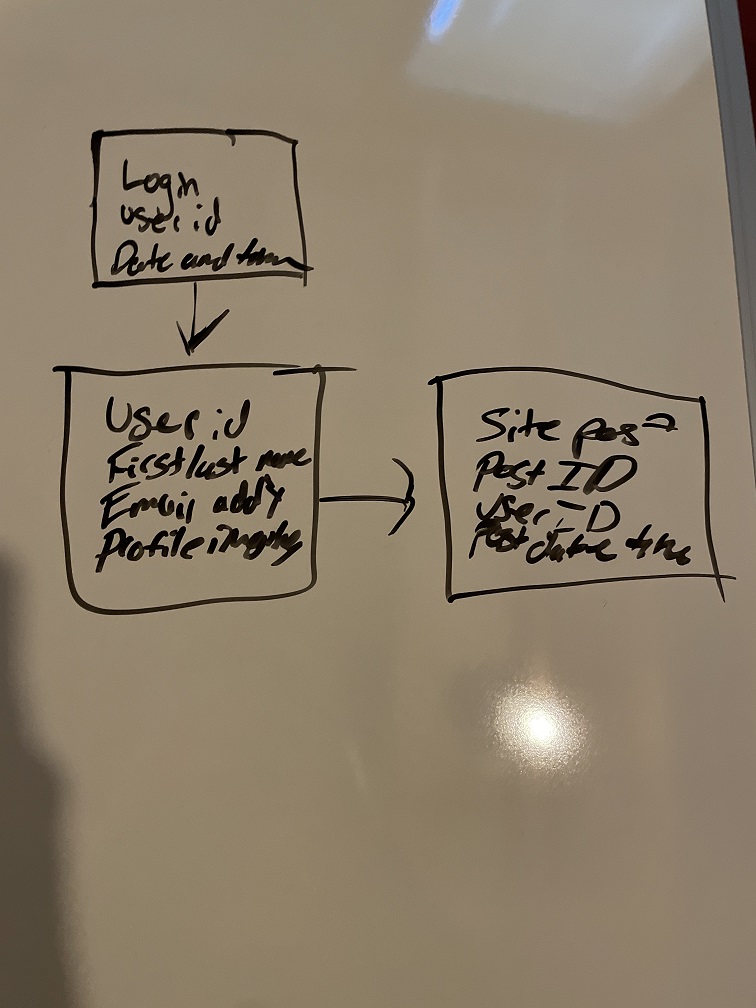 Login
user id
Date and time
User id
First last name
Email addy
Profile
Site post
Post ID
User ID
Post date time